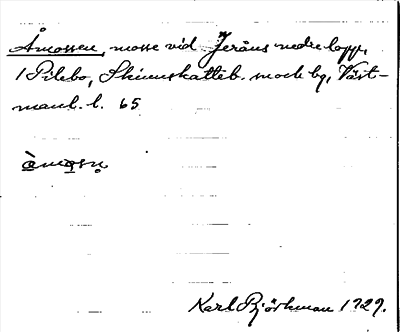 Åmossen, mosse vid Jeråns nedre lopp,
1 Pilebo, Skinnskatteb. sock o bg, Väst-
manl. l. 65
åmo̯sn̥
Karl Björkman 1929.